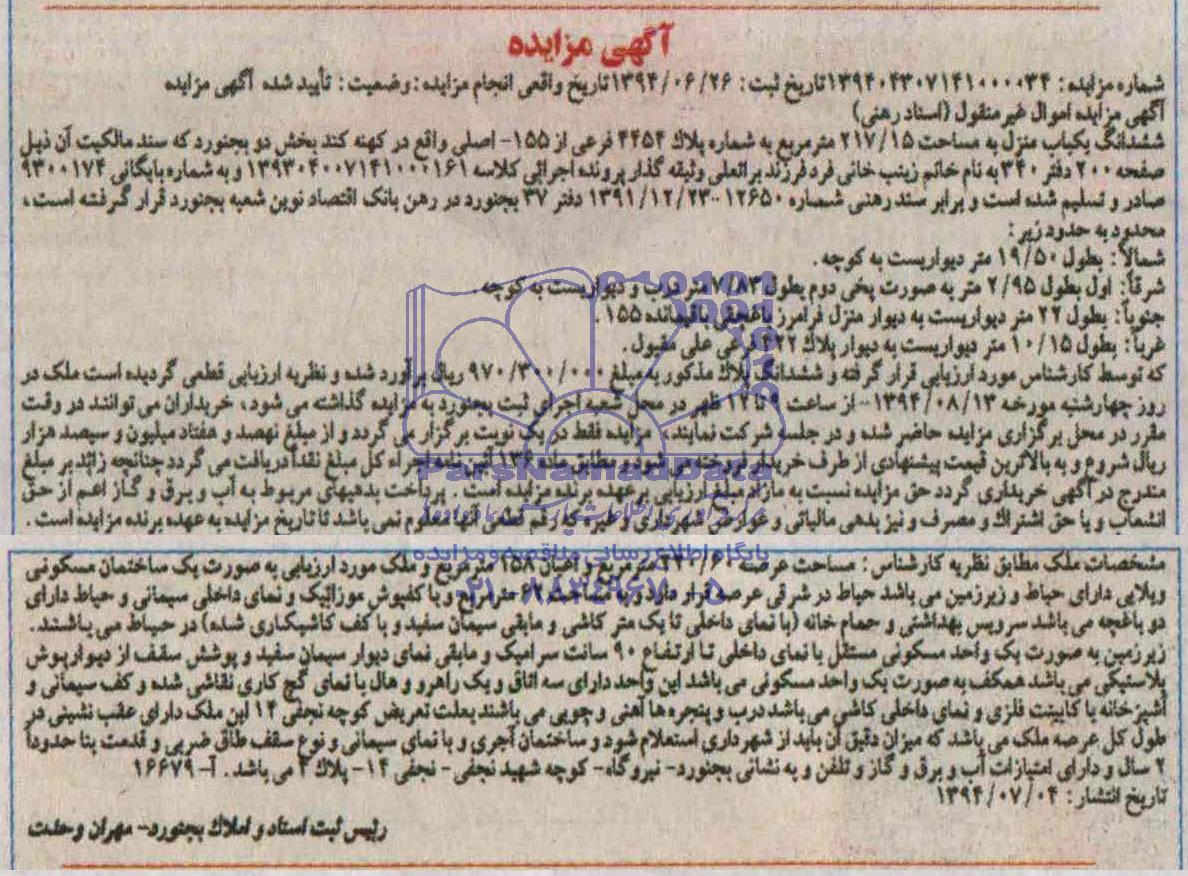 آگهی مزایده
شماره مزایده: ۱۳۹۴۰۴۳۰۷۱۴۱۰۰۰۰۳۴ تاریخ ثبت: ۱۳۹۴/۰۶/۲۶ تاریخ واقعی انجام مزایده: وضعیت: تأیید شده آگهی مزایده
آگهی مزایده اموال غیرمنقول (اسناد رهنی)
ششدانگ یکباب منزل به مساحت ۲۱۷/۱۵ مترمربع به شماره پلاک ۴۴۵۴ فرعی از ۱۵۵- اصلی واقع در کهنه کند بخش دو بجنورد که سند مالکیت آن ذیل
صفحه ۲۰۰ دفتر ۳۴۰ به نام خانم زینب خانی فرد فرزند براتعلی وثیقه گذار پرونده اجرائی کلاسه ۱۳۹۳۰۴۰۰۷۱۴۱۰۰۰۱۶۱ و به شماره بایگانی ۹۳۰۰۱۷۴
صادر و تسلیم شده است و برابر سند رهنی شماره ۱۲۶۵۰-۱۳۹۱/۱۲/۲۳ دفتر ۳۷ بجنورد در رهن بانک اقتصاد نوین شعبه بجنورد قرار گرفته است،
محدود به حدود زیر:
شمالاً: بطول ۱۹/۵۰ متر دیواریست به کوچه.
شرقاً: اول بطول ۲/۹۵ متر به صورت پخی دوم بطول ۷/۸۳ متر درب و دیواریست به کوچه.
جنوباً: بطول ۲۲ متر دیواریست به دیوار منزل فرامرز باغچقی باقیمانده ۱۵۵.
غرباً: بطول ۱۰/۱۵ متر دیواریست به دیوار پلاک ۴۲۲ فرعی علی مقبول.
که توسط کارشناس مورد ارزیابی قرار گرفته و ششدانگ پلاک مذکور به مبلغ ۹۷۰/۳۰۰/۰۰۰ ریال برآورد شده و نظریه ارزیابی قطعی گردیده است ملک در
روز چهارشنبه مورخه ۱۳۹۴/۰۸/۱۳- از ساعت ۹ تا ۱۲ ظهر در محل شعبه اجرای ثبت بجنورد به مزایده گذاشته می شود، خریداران می توانند در وقت
مقرر در محل برگزاری مزایده حاضر شده و در جلسه شرکت نمایند. مزایده فقط در یک نوبت برگزار می گردد و از مبلغ نهصد و هفتاد میلیون و سیصد هزار
ریال شروع و به بالاترین قیمت پیشنهادی از طرف خریدار فروخته می شود و مطابق ماده ۱۳۶ آئین نامه اجراء کل مبلغ نقداً دریافت می گردد چنانچه زائد بر مبلغ
مندرج در آگهی خریداری گردد حق مزایده نسبت به مازاد مبلغ ارزیابی بر عهده برنده مزایده است. پرداخت بدهیهای مربوط به آب و برق و گاز اعم از حق
انشعاب و یا حق اشتراک و مصرف و نیز بدهی مالیاتی و عوارض شهرداری و غیره که رقم قطعی آنها معلوم نمی باشد تا تاریخ مزایده به عهده برنده مزایده است.
مشخصات ملک مطابق نظریه کارشناس: مساحت عرصه مترمربع و اعیان ۱۵۸ مترمربع و ملک مورد ارزیابی به صورت یک ساختمان مسکونی
ویلایی دارای حیاط و زیرزمین می باشد حیاط در شرقی عرصه قرار دارد و به مساحت ۶۲ مترمربع و با کفپوش موزائیک و نمای داخلی سیمانی و حیاط دارای
دو باغچه می باشد سرویس بهداشتی و حمام خانه (با نمای داخلی تا یک متر کاشی و مابقی سیمان سفید و با کف کاشیکاری شده) در حیاط می باشند.
زیرزمین به صورت یک واحد مسکونی مستقل با نمای داخلی تا ارتفاع ۹۰ سانت سرامیک و مابقی نمای دیوار سیمان سفید و پوشش سقف از دیوارپوش
پلاستیکی می باشد همکف به صورت یک واحد مسکونی می باشد این واحد دارای سه اتاق و یک راهرو و هال با نمای گچ کاری نقاشی شده و کف سیمانی و
آشپزخانه با کابینت فلزی و نمای داخلی کاشی می باشد درب و پنجره ها آهنی و چوبی می باشند بعلت تعریض کوچه نجفی ۱۴ این ملک دارای عقب نشینی در
طول کل عرصه ملک می باشد که میزان دقیق آن باید از شهرداری استعلام شود و ساختمان آجری و با نمای سیمانی و نوع سقف طاق ضربی و قدمت بنا حدوداً
۲ سال و دارای امتیازات آب و برق و گاز و تلفن و به نشانی بجنورد- نیروگاه- کوچه شهید نجفی- نجفی ۱۴- پلاک ۴ می باشد. آ- ۱۶۶۷۹
تاریخ انتشار: ۱۳۹۴/۰۷/۰۴
رئیس ثبت اسناد و املاک بجنورد- مهران وحدت
ParsNamadData
پایگاه اطلاع رسانی مناقصه و مزایده
۰۲۱-۸۸۳۴۹۶۷۰-۵